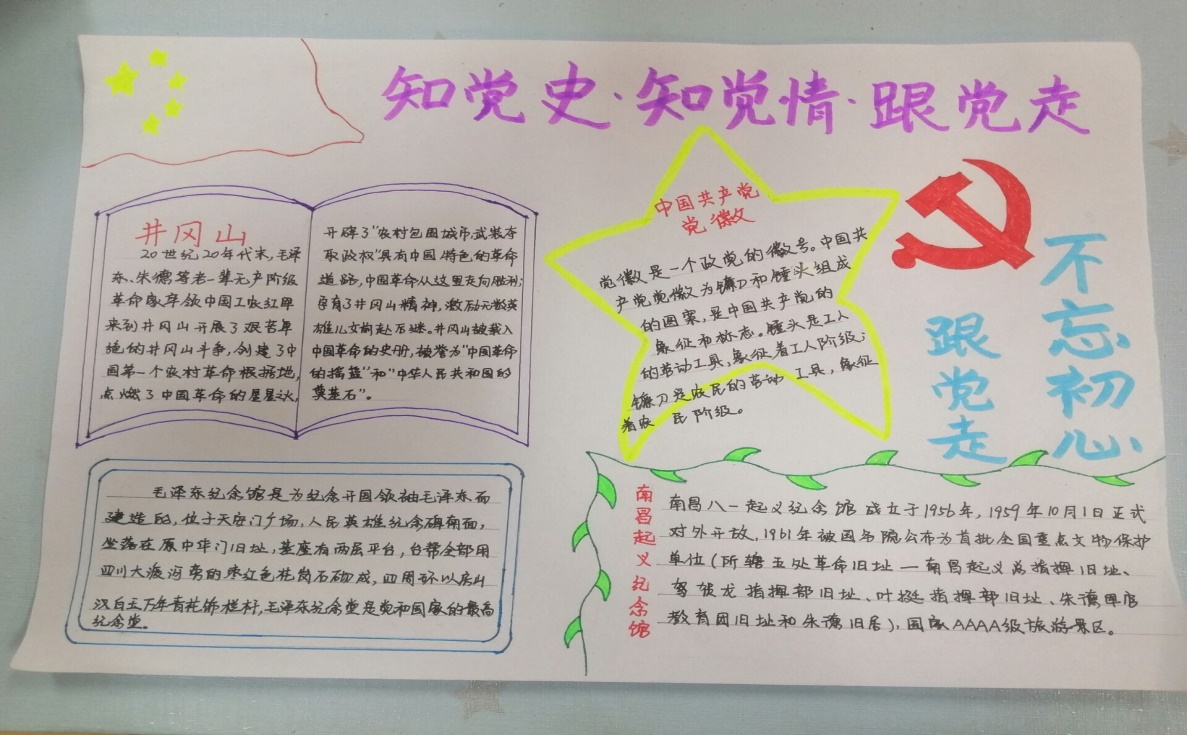 知党史·知党情·跟党走
井冈山
20世纪20年代末,毛泽
东、朱德等老一辈无产阶级
革命家率领中国工农红军
来到井冈山开展了艰苦卓
绝的井冈山斗争,创建了中
国第一个农村革命根据地,
点燃了中国革命的星星火,
开辟了"农村包围城市,武装夺
取政权"具有中国特色的革命
道路,中国革命从这里走向胜利;
孕育了井冈山精神,激励无数英
雄儿女前赴后继。井冈山被载入
中国革命的史册,被誉为"中国革命
的摇篮"和"中华人民共和国的
奠基石"。
中国共产党
党徽
党徽是一个政党的徽号。中国共
产党党徽为镰刀和锤头组成
的图案,是中国共产党的
象征和标志。锤头是工人
的劳动工具,象征着工人阶级;
镰刀是农民的劳动工具,象征
着农民阶级。
不忘初心
跟党走
毛泽东纪念馆是为纪念开国领袖毛泽东而
建造的,位于天安门广场,人民英雄纪念碑南面,
坐落在原中华门旧址,基座有两层平台,台帮全部用
四川大渡河旁的枣红色花岗石砌成,四周环以房山
汉白玉万年青花饰栏杆,毛泽东纪念堂是党和国家的最高
纪念堂。
南昌起义纪念馆
南昌八一起义纪念馆成立于1956年,1959年10月1日正式
对外开放,1961年被国务院公布为首批全国重点文物保护
单位(所辖五处革命旧址—南昌起义总指挥旧址、
贺龙指挥部旧址、叶挺指挥部旧址、朱德军官
教育团旧址和朱德旧居),国家AAAA级旅游景区。